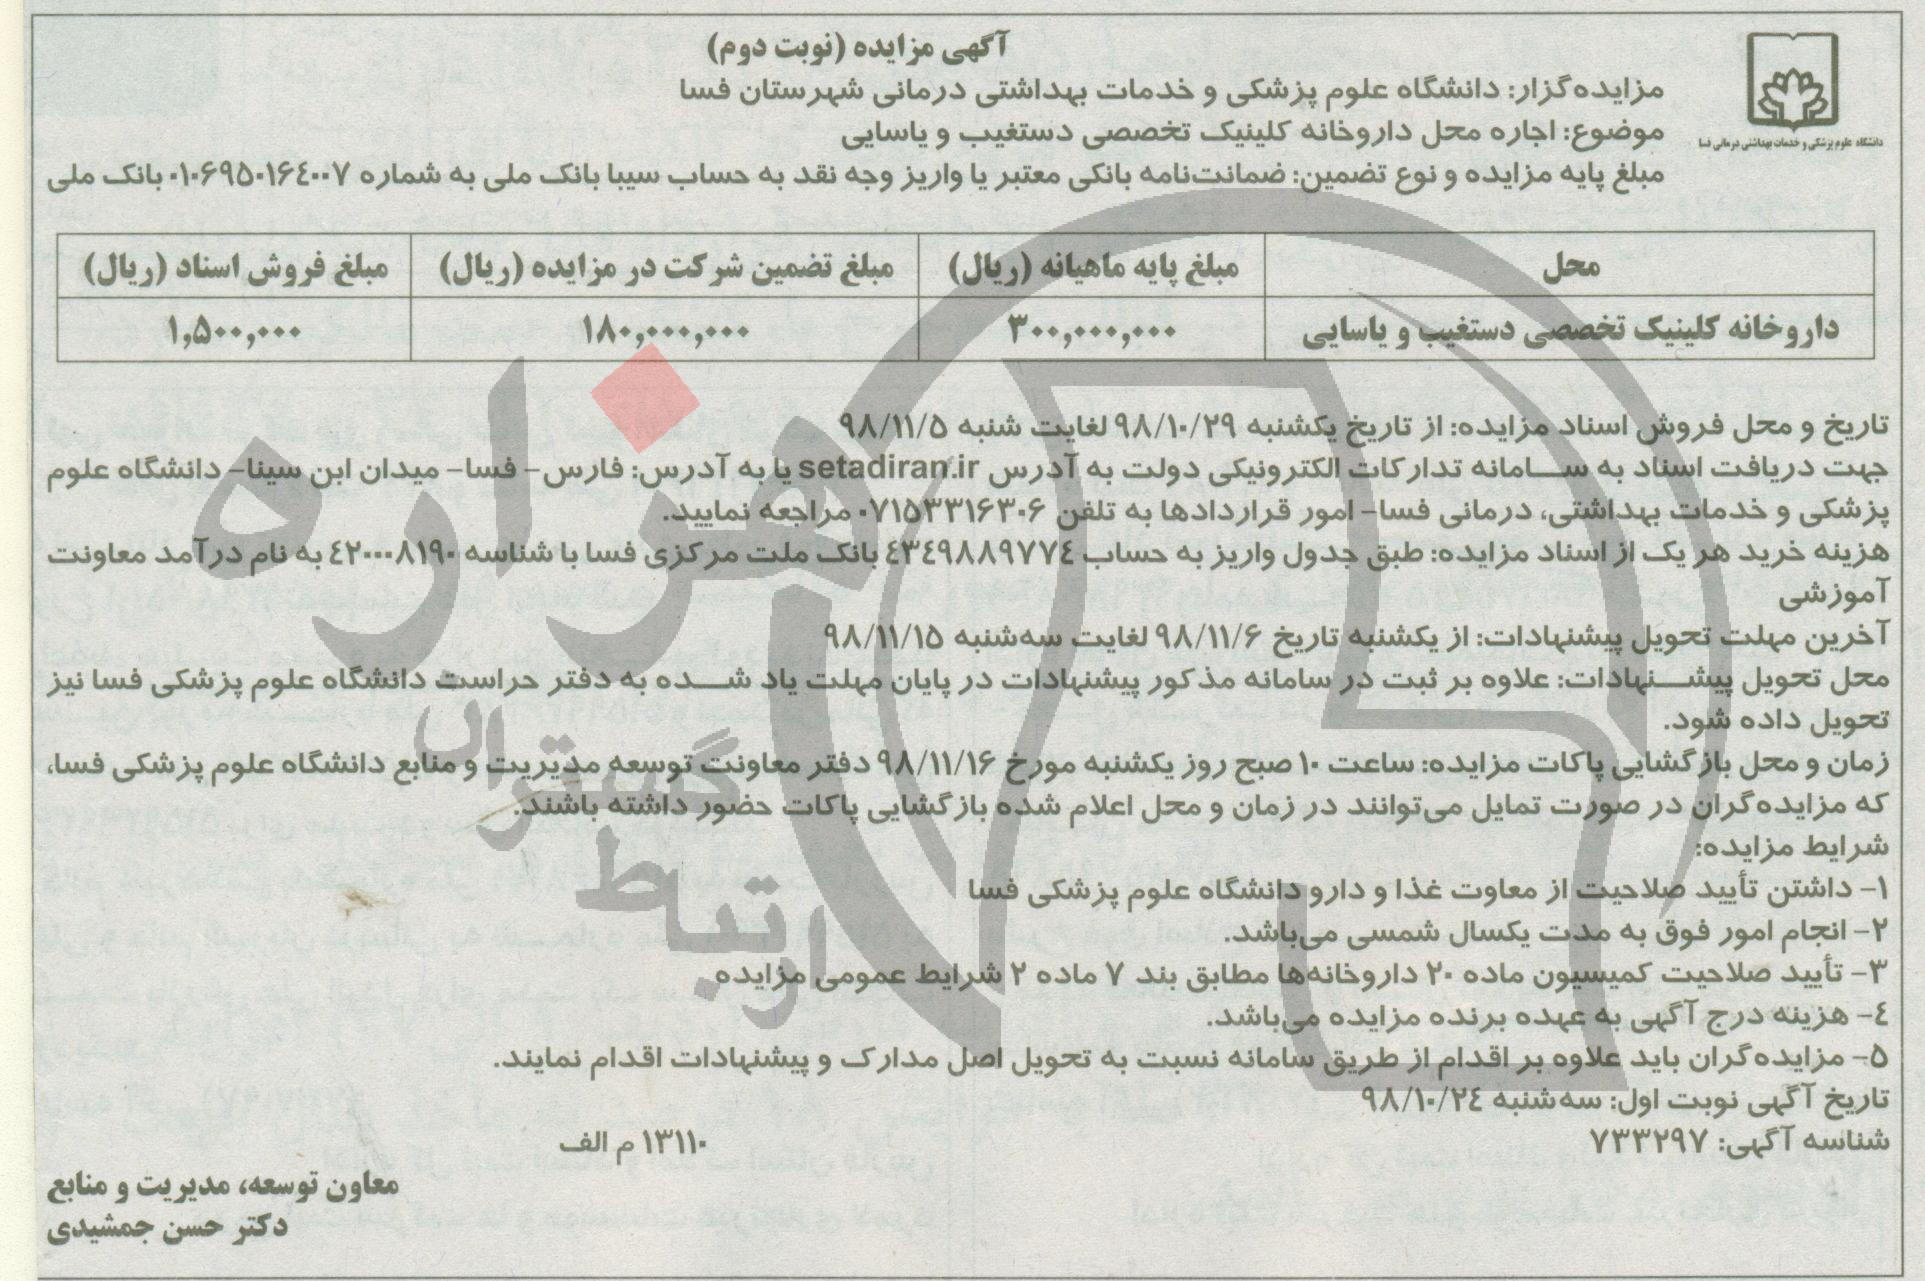 آگهی مزایده (نوبت دوم)
مزایده‌گزار: دانشگاه علوم پزشکی و خدمات بهداشتی درمانی شهرستان فسا
موضوع: اجاره محل داروخانه کلینیک تخصصی دستغیب و یاسایی
دانشگاه علوم پزشکی و خدمات بهداشتی درمانی فسا
مبلغ پایه مزایده و نوع تضمین: ضمانت‌نامه بانکی معتبر یا واریز وجه نقد به حساب سیبا بانک ملی به شماره ۰۱۰۶۹۵۰۱۶۴۰۰۷ بانک ملی
محل مبلغ پایه ماهیانه (ریال) مبلغ تضمین شرکت در مزایده (ریال) مبلغ فروش اسناد (ریال)
داروخانه کلینیک تخصصی دستغیب و یاسایی ۳۰۰,۰۰۰,۰۰۰ ۱۸۰,۰۰۰,۰۰۰ ۱,۵۰۰,۰۰۰
تاریخ و محل فروش اسناد مزایده: از تاریخ یکشنبه ۹۸/۱۰/۲۹ لغایت شنبه ۹۸/۱۱/۵
جهت دریافت اسناد به سامانه تدارکات الکترونیکی دولت به آدرس setadiran.ir یا به آدرس: فارس- فسا- میدان ابن سینا- دانشگاه علوم
پزشکی و خدمات بهداشتی، درمانی فسا- امور قراردادها به تلفن ۰۷۱۵۳۳۱۶۳۰۶ مراجعه نمایید.
هزینه خرید هر یک از اسناد مزایده: طبق جدول واریز به حساب ۴۳۴۹۸۸۹۷۷۴ بانک ملت مرکزی فسا با شناسه ۴۲۰۰۰۸۱۹۰ به نام درآمد معاونت
آموزشی
آخرین مهلت تحویل پیشنهادات: از یکشنبه تاریخ ۹۸/۱۱/۶ لغایت سه‌شنبه ۹۸/۱۱/۱۵
محل تحویل پیشنهادات: علاوه بر ثبت در سامانه مذکور پیشنهادات در پایان مهلت یاد شده به دفتر حراست دانشگاه علوم پزشکی فسا نیز
تحویل داده شود.
زمان و محل بازگشایی پاکات مزایده: ساعت ۱۰ صبح روز یکشنبه مورخ ۹۸/۱۱/۱۶ دفتر معاونت توسعه مدیریت و منابع دانشگاه علوم پزشکی فسا،
که مزایده‌گران در صورت تمایل می‌توانند در زمان و محل اعلام شده بازگشایی پاکات حضور داشته باشند.
شرایط مزایده:
۱- داشتن تأیید صلاحیت از معاوت غذا و دارو دانشگاه علوم پزشکی فسا
۲- انجام امور فوق به مدت یکسال شمسی می‌باشد.
۳- تأیید صلاحیت کمیسیون ماده ۲۰ داروخانه‌ها مطابق بند ۷ ماده ۲ شرایط عمومی مزایده
۴- هزینه درج آگهی به عهده برنده مزایده می‌باشد.
۵- مزایده‌گران باید علاوه بر اقدام از طریق سامانه نسبت به تحویل اصل مدارک و پیشنهادات اقدام نمایند.
تاریخ آگهی نوبت اول: سه‌شنبه ۹۸/۱۰/۲۴
شناسه آگهی: ۷۳۳۲۹۷
۱۳۱۱۰ م الف
معاون توسعه، مدیریت و منابع
دکتر حسن جمشیدی
هزاره
ارتباط گستران